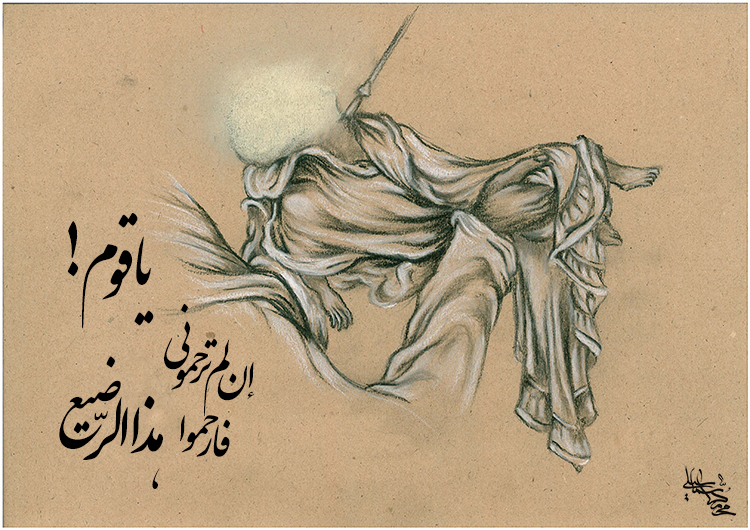 یا قوم!
إن لم ترحمونی
فارحموا هذا الرّضیع